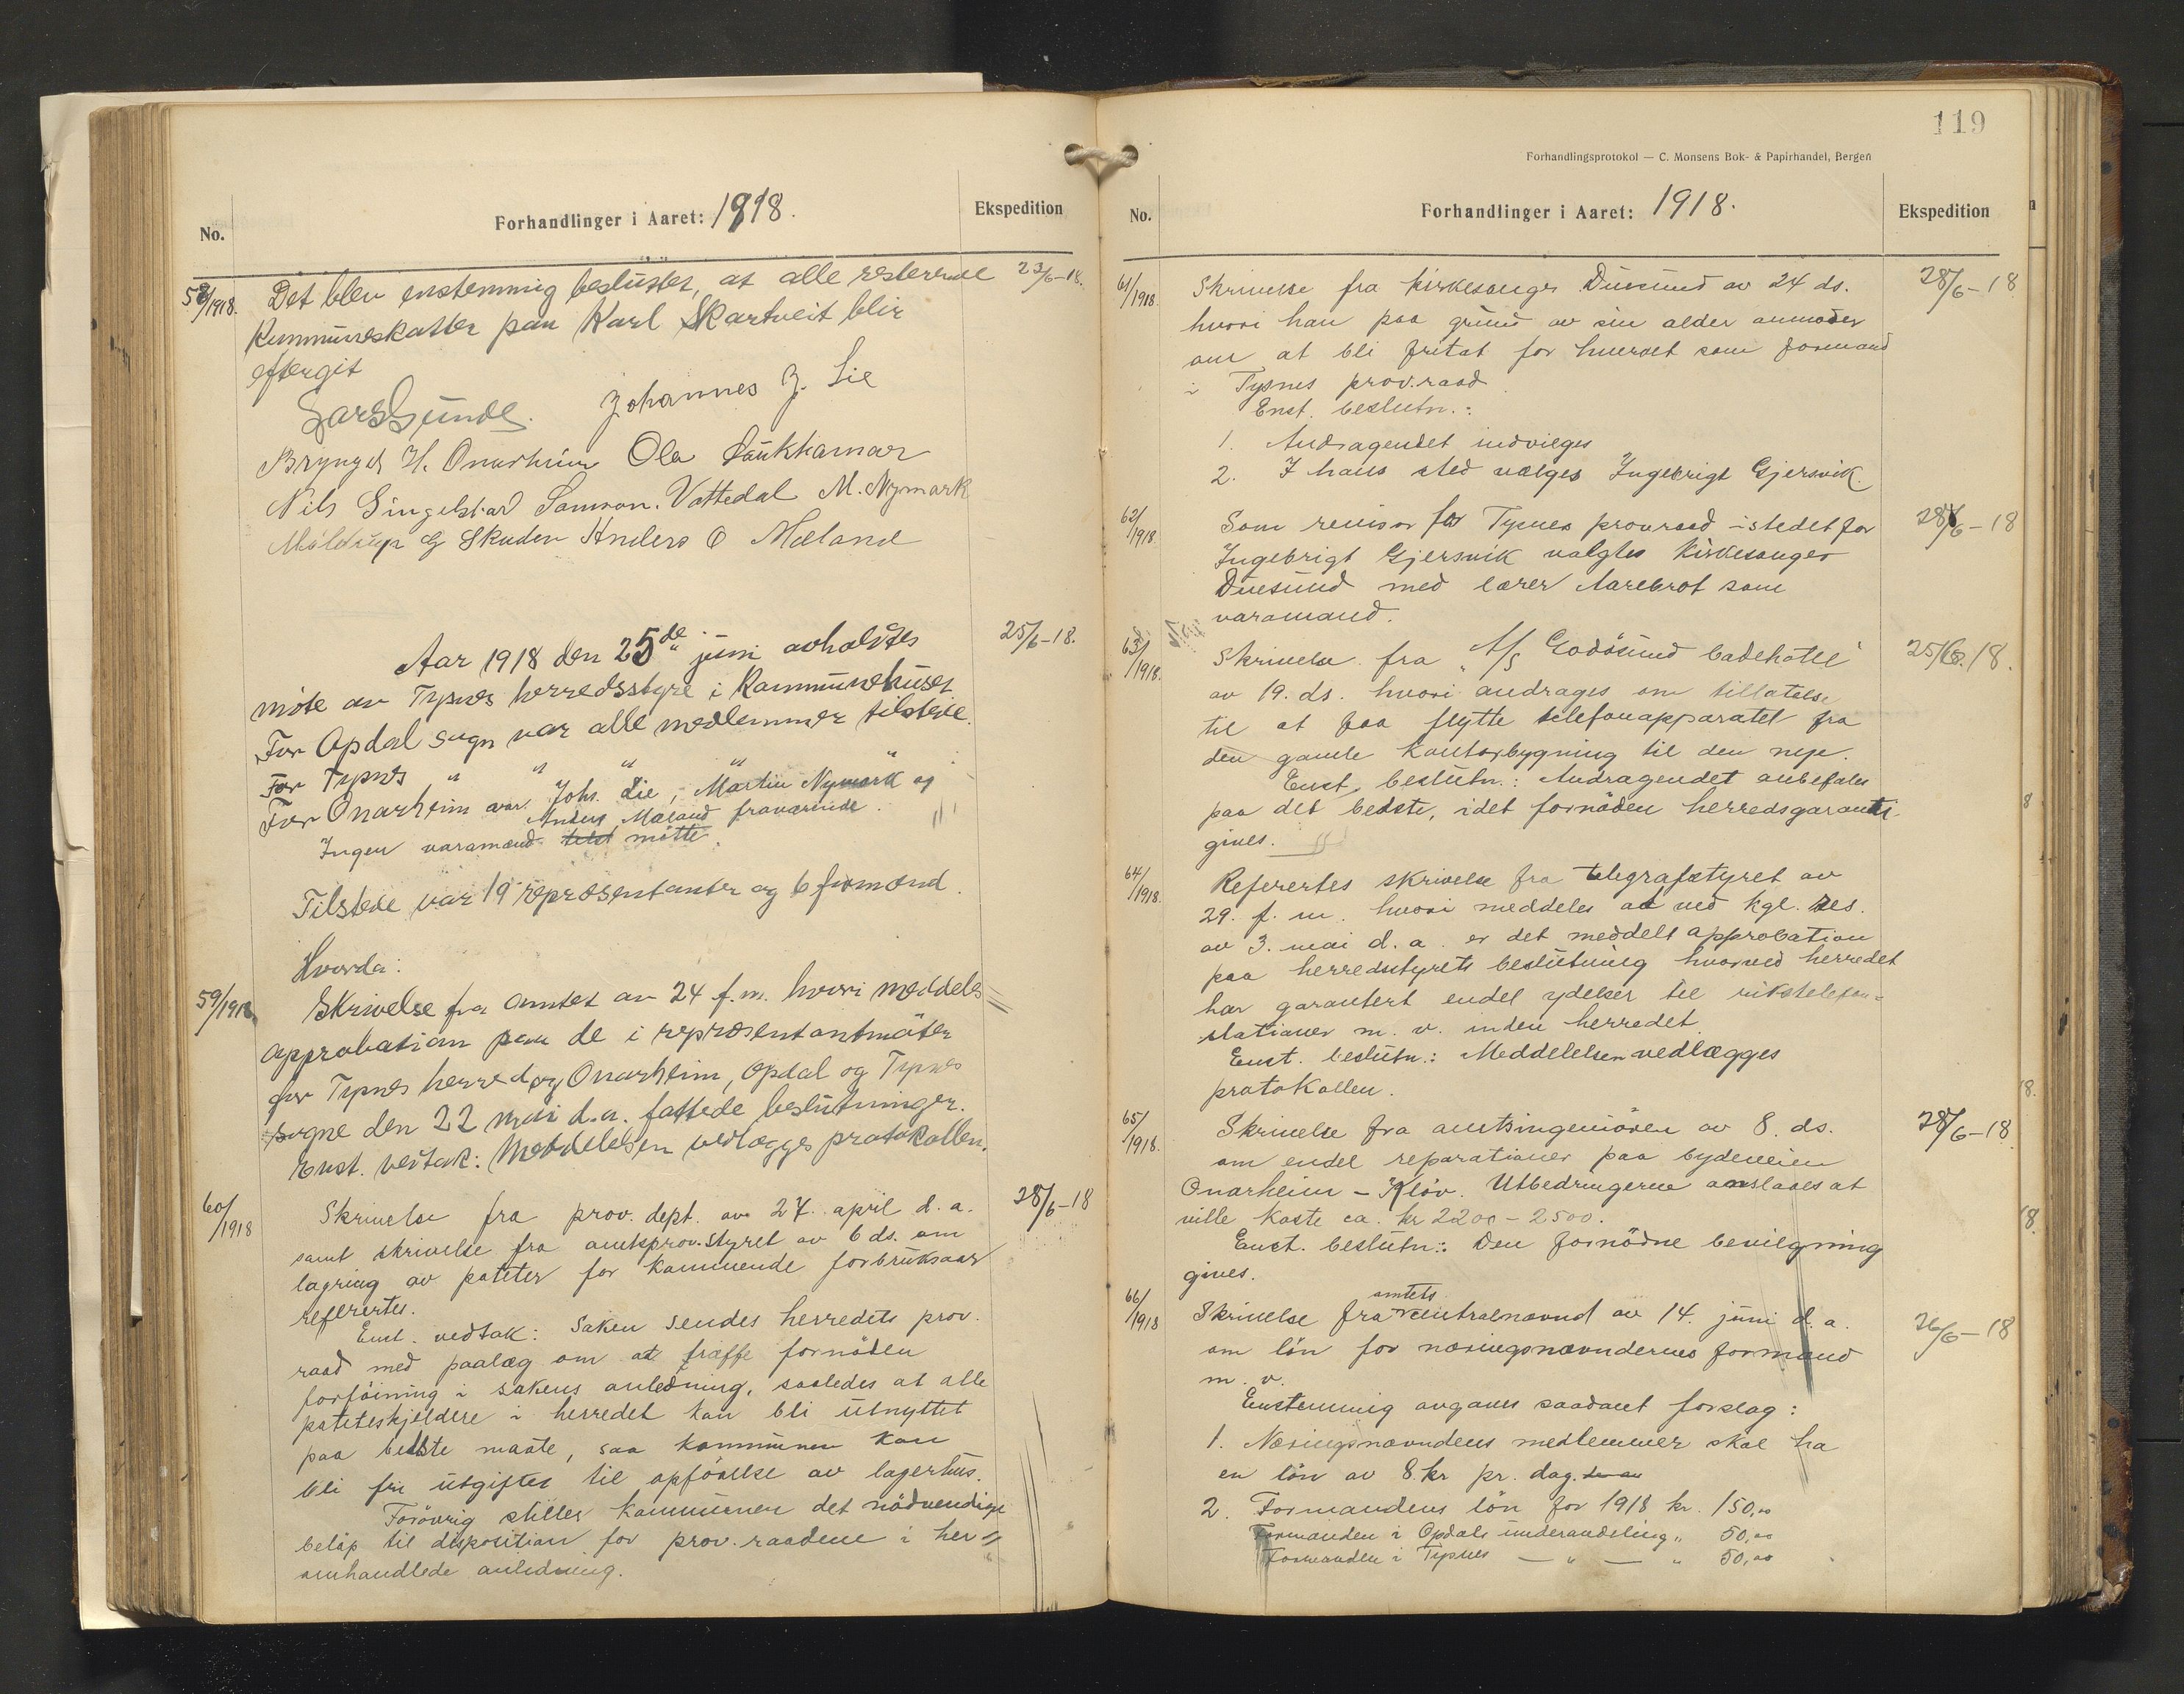 No.
Forhandlinger i Aaret: 1918.
Ekspedition
58/1918. Det blev enstemmig besluttet, at alle resterende 23/6-18.
Kommuneskatter paa Karl Skartveit blir
eftergit
Lars Sunde. Johannes J. Lie
Brynjel H. Onarheim Ola Laukhamar
Nils Singelstad Samson. Vattedal M. Nymark
G Skuden Anders O Mæland
Aar 1918 den 25de juni avholdtes 25/6-18.
möte av Tysnes herredsstyre i Kommunehuset
For Opdal sogn var alle medlemmer tilstede.
For Tysnes " " " " "
For Onarheim var Joh. Lie, Martin Nymark og
Anders Mæland fraværende.
Ingen varamænd møtte.
Tilstede var 19 repræsentanter og 6 formænd.
Hvorda:
59/1918. Skrivelse fra Amtet av 24 f.m. hvori meddeles
approbation paa de i repræsentantmöter
for Tysnes herred og Onarheim, Opdal og Tysnes
sogne den 22 mai d.a. fattede beslutninger.
Enst. vedtak: Meddelelsen vedlægges protokollen.
60/1918 Skrivelse fra prov. dept. av 27. april d. a. 28/6-18
samt skrivelse fra amtsprov.styret av 6 ds. om
lagring av poteter for kommende forbruksaar
refereres.
Enst. vedtak: Saken sendes herredets prov.
raad med paalæg om at træffe fornöden
forföining i sakens anledning, saaledes at alle
poteteskjeldere i herredet kan bli utnyttet
paa bedste maate, saa kommunen kan
bli fri utgifter til opförelse av lagerhus.
Forövrig stiller kommunen det nödvendige
belöp til disposition for prov. raadene i her
omhandlede anledning.
119
Forhandlingsprotokol — C. Monsens Bok- & Papirhandel, Bergen
No.
Forhandlinger i Aaret: 1918.
Ekspedition
61/1918. Skrivelse fra kirkesanger Duesund av 24 ds. 28/6-18
hvori han paa grund av sin alder anmoder
om at bli fritat for hvervet som formand
i Tysnes prov.raad
Enst. beslutn.:
1. Andragendet indvilges
2. I hans sted vælges Ingebrigt Gjersvik.
62/1918 Som revisor for Tysnes provraad istedetfor 28/6-18
Ingebrigt Gjersvik valgtes kirkesanger
Duesund med lærer Aarebrot som
varamand.
63/1918. Skrivelse fra "A/S Godösund badehotel" 25/6.18.
av 19. ds. hvori andrages om tillatelse
til at faa flytte telefonapparatet fra
den gamle kontorbygning til den nye.
Enst. beslutn.: Andragendet anbefales
paa det bedste, idet fornöden herredsgaranti
gives.
64/1918. Referertes skrivelse fra telegrafstyret av
29. f. m. hvori meddeles at ved kgl. res.
av 3. mai d. a. er det meddelt approbation
paa herredstyrets beslutning hvorved herredet
har garantert endel ydelser til rikstelefon=
stationer m. v. inden herredet.
Enst. beslutn.: Meddelelsen vedlægges
protokollen.
65/1918. Skrivelse fra amtsingeniören av 8. ds. 28/6-18
om endel reparationer paa bydeveien
Onarheim - Flöv. Utbedringerne anslaaes at
ville koste ca. kr 2200 - 2500.
Enst. beslutn: Den fornödne bevilgning
gives.
66/1918 Skrivelse fra amtets centralnævnd av 14. juni d. a. 26/6-18
om lön for næringsnævndernes formænd
m. v.
Enstemmig avgaves saadant forslag:
1. Næringsnævndens medlemmer skal ha
en lön av 8 kr pr. dag.
2. Formandens lön for 1918 kr. 150,00
Formanden i Opdals underavdeling " 50,00
Formanden i Tysnes — " — " 50,00